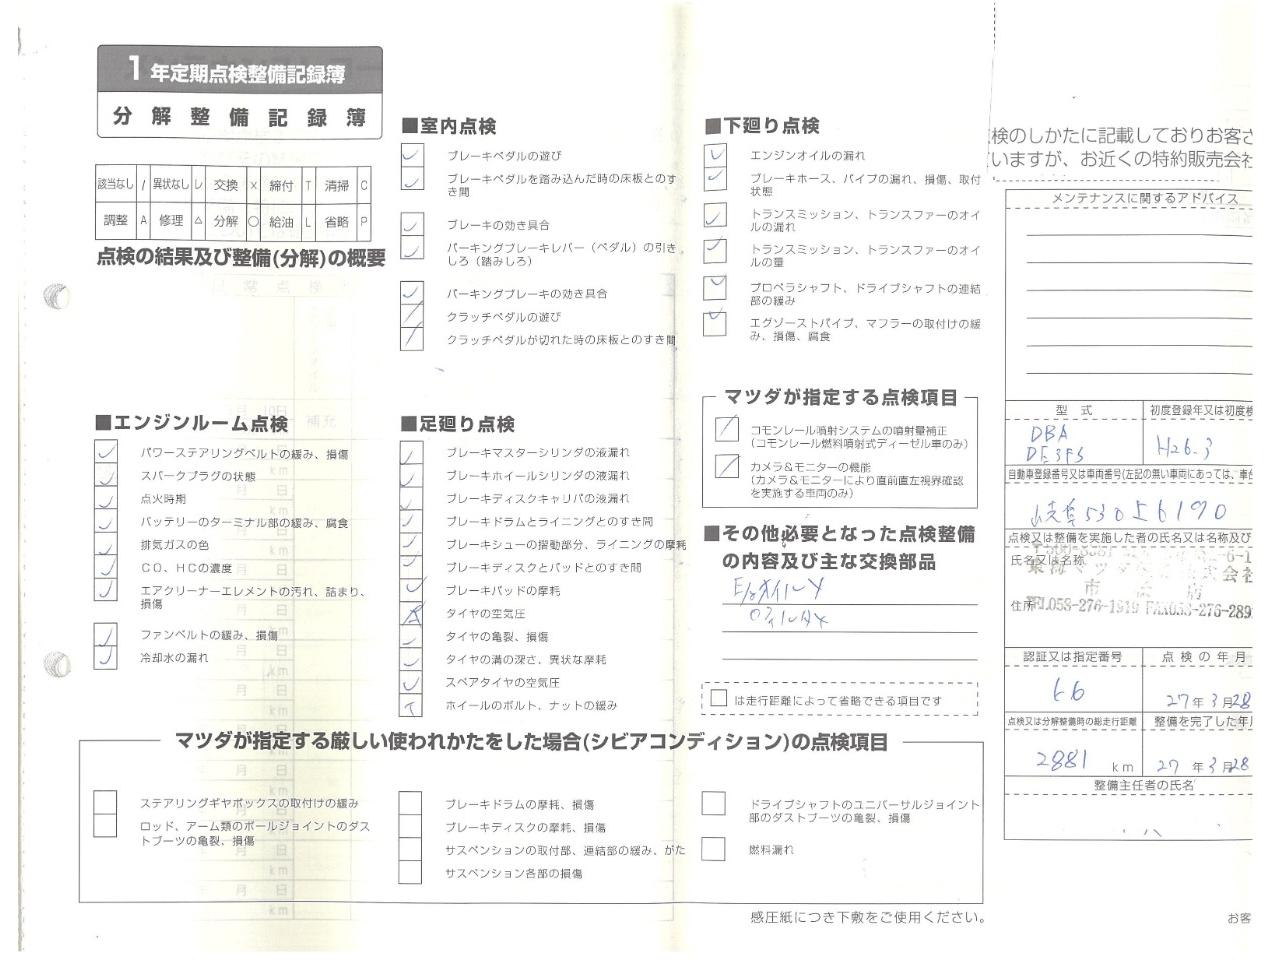 1年定期点検整備記録簿
分解整備記録簿
該当なし / 異状なし レ 交換 × 締付 T 清掃 C
調整 A 修理 △ 分解 ○ 給油 L 省略 P
点検の結果及び整備(分解)の概要
■エンジンルーム点検
パワーステアリングベルトの緩み、損傷
スパークプラグの状態
点火時期
バッテリーのターミナル部の緩み、腐食
排気ガスの色
CO、HCの濃度
エアクリーナーエレメントの汚れ、詰まり、
損傷
ファンベルトの緩み、損傷
冷却水の漏れ
■室内点検
ブレーキペダルの遊び
ブレーキペダルを踏み込んだ時の床板とのす
き間
ブレーキの効き具合
パーキングブレーキレバー（ペダル）の引き
しろ（踏みしろ）
パーキングブレーキの効き具合
クラッチペダルの遊び
クラッチペダルが切れた時の床板とのすき間
■足廻り点検
ブレーキマスターシリンダの液漏れ
ブレーキホイールシリンダの液漏れ
ブレーキディスクキャリパの液漏れ
ブレーキドラムとライニングとのすき間
ブレーキシューの摺動部分、ライニングの摩耗
ブレーキディスクとパッドとのすき間
ブレーキパッドの摩耗
タイヤの空気圧
タイヤの亀裂、損傷
タイヤの溝の深さ、異状な摩耗
スペアタイヤの空気圧
ホイールのボルト、ナットの緩み
■下廻り点検
エンジンオイルの漏れ
ブレーキホース、パイプの漏れ、損傷、取付
状態
トランスミッション、トランスファーのオイ
ルの漏れ
トランスミッション、トランスファーのオイ
ルの量
プロペラシャフト、ドライブシャフトの連結
部の緩み
エグゾーストパイプ、マフラーの取付けの緩
み、損傷、腐食
マツダが指定する点検項目
コモンレール噴射システムの噴射量補正
(コモンレール燃料噴射式ディーゼル車のみ)
カメラ&モニターの機能
(カメラ&モニターにより直前直左視界確認
を実施する車両のみ)
■その他必要となった点検整備
の内容及び主な交換部品
E/gオイル ×
Oフィルタ ×
は走行距離によって省略できる項目です
マツダが指定する厳しい使われかたをした場合(シビアコンディション)の点検項目
ステアリングギヤボックスの取付けの緩み
ロッド、アーム類のボールジョイントのダス
トブーツの亀裂、損傷
ブレーキドラムの摩耗、損傷
ブレーキディスクの摩耗、損傷
サスペンションの取付部、連結部の緩み、がた
サスペンション各部の損傷
ドライブシャフトのユニバーサルジョイント
部のダストブーツの亀裂、損傷
燃料漏れ
感圧紙につき下敷をご使用ください。
検のしかたに記載しておりお客さ
いますが、お近くの特約販売会社
メンテナンスに関するアドバイス
型式 初度登録年又は初度検
DBA
DE3FS
H26.3
自動車登録番号又は車両番号(左記の無い車両にあっては、車台
530 56190
点検又は整備を実施した者の氏名又は名称及び
氏名又は名称
住所 TEL058-276-1919 FAX058-276-289
認証又は指定番号 点検の年月
66 27年3月28
点検又は分解整備時の総走行距離 整備を完了した年月
2881 km 27年3月28
整備主任者の氏名
お客